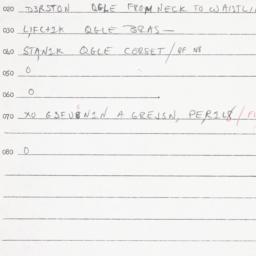 020 D3RSTON QGLE FROM NECK TO WAISTLI
030 LIFCH1K QGLE BRAS —
040 STAN1K QGLE CORSET / OF NB
050 0
060 0
070 XO GDEUBN1N A GREJSN, PER1L8 / F
080 0